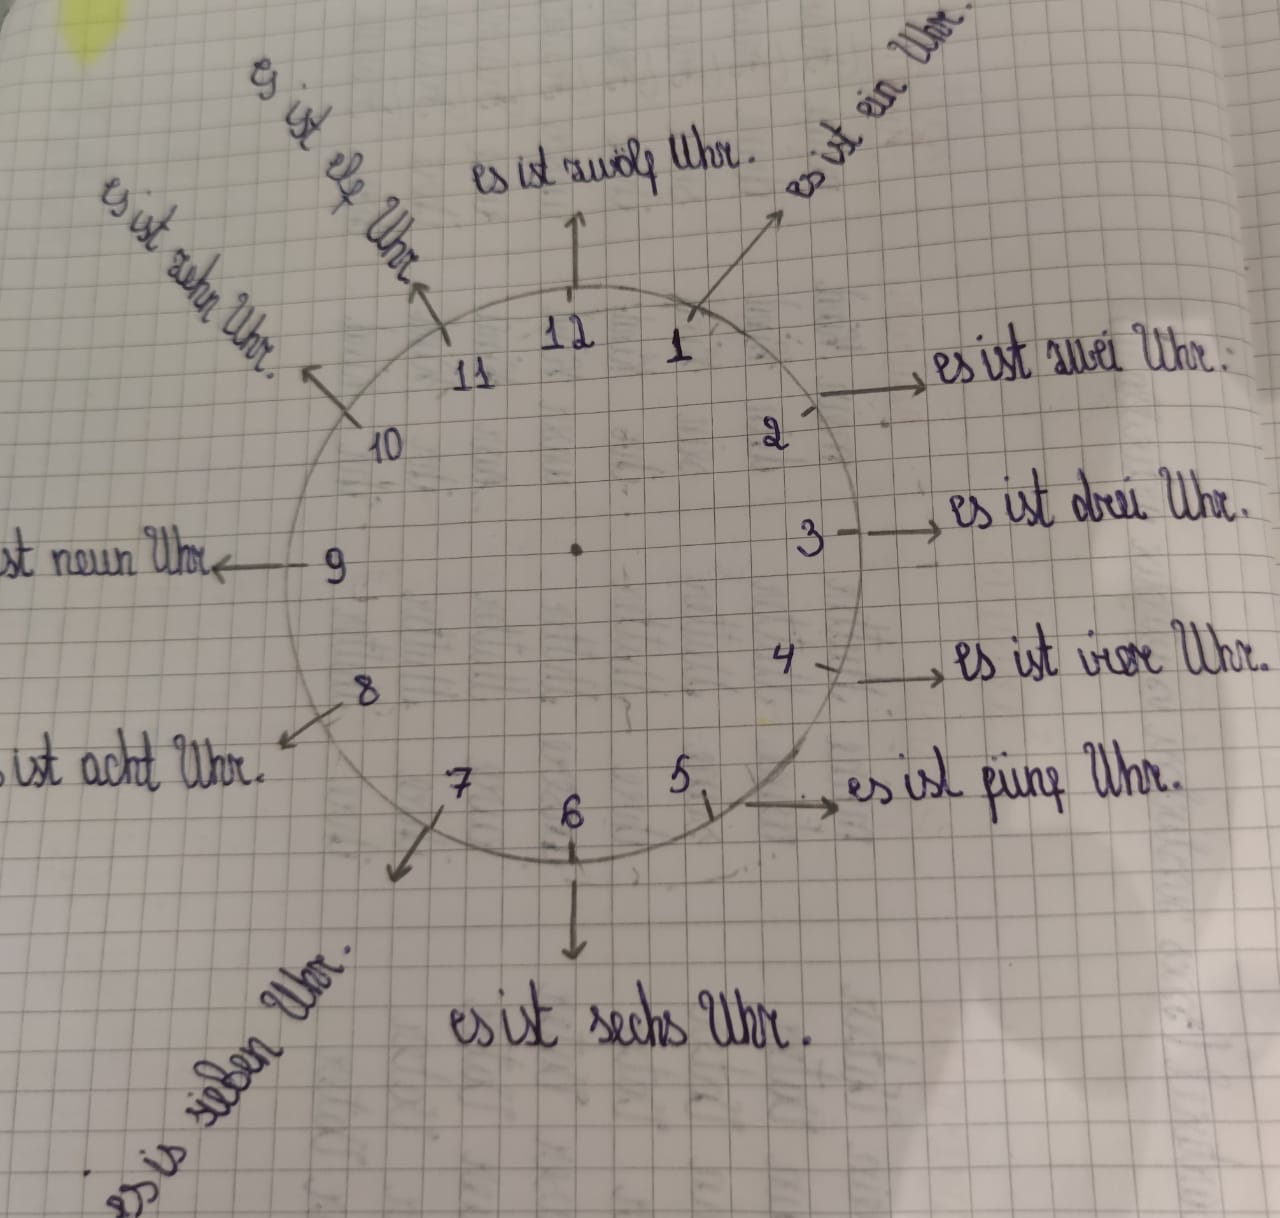 es ist zwölf Uhr.
es ist ein Uhr.
es ist zwei Uhr.
es ist drei Uhr.
es ist vier Uhr.
es ist fünf Uhr.
es ist sechs Uhr.
es is sieben Uhr.
ist acht Uhr.
st neun Uhr
es ist zehn Uhr.
es ist elf Uhr.
12
1
2
3
4
5
6
7
8
9
10
11